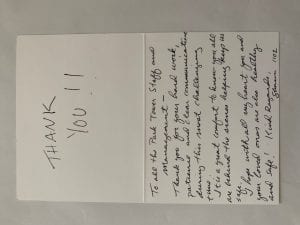 THANK
YOU!!
To all the Park Tower Staff and
Management —
Thank you for your hard work,
patience and clear communication
during this most challenging
time.
It is a great comfort to know you all
are behind the scenes helping keep us
safe.
I hope with all my heart you and
your loved ones are also healthy
and safe. Kind Regards,
1102